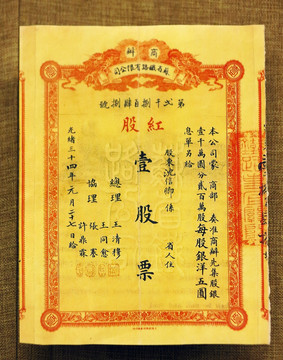 商辦
蘇省鐵路有限公司
第弍千捌百肆捌號
紅股
本公司蒙 商部 奏准商辦先集股銀
壹千萬圓分貳百萬股每股銀洋五圓
息單另給
股東沈信卿 係 省人住
壹股票
總理 王清穆
協理 王同愈
張謇
許鼎霖
光緒三十四年元月二十七日給